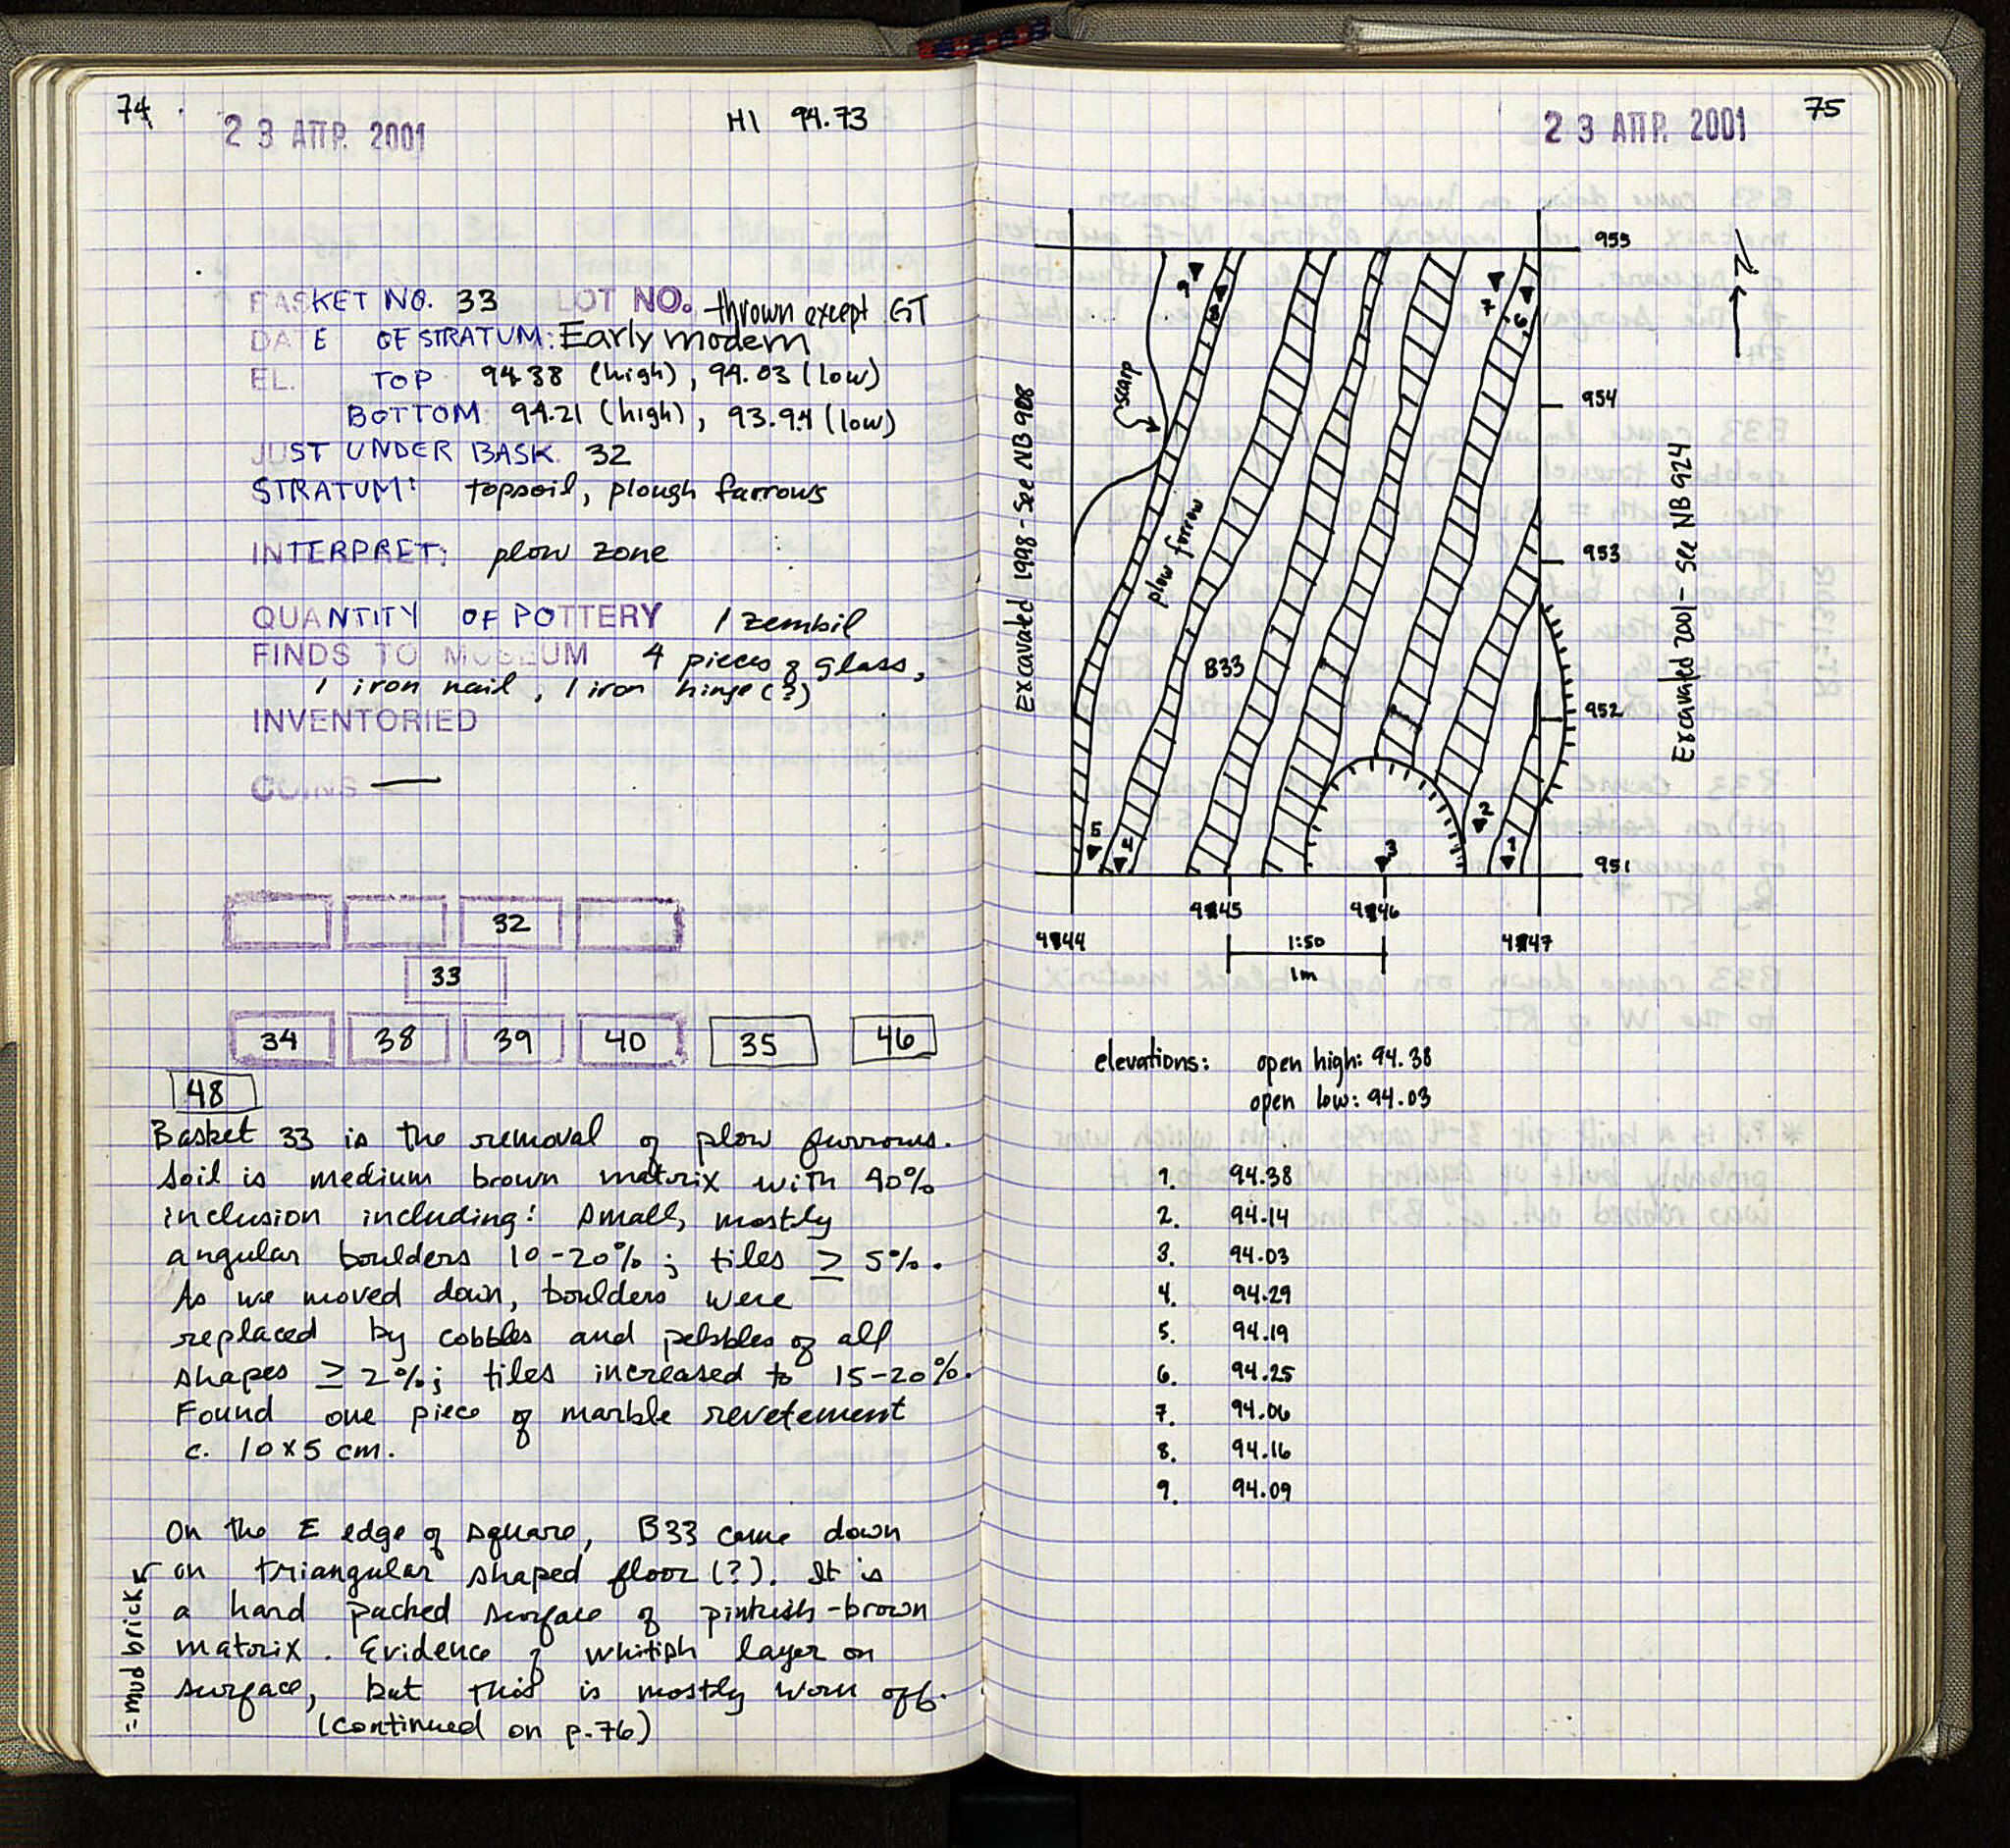 74
23 ΑΠΡ. 2001
HI 94.73
BASKET NO. 33 LOT NO. thrown except GT
DATE OF STRATUM: Early modern
EL. TOP 94.38 (high), 94.03 (low)
BOTTOM 94.21 (high), 93.94 (low)
JUST UNDER BASK. 32
STRATUM: topsoil, plough farrows
INTERPRET: plow zone
QUANTITY OF POTTERY 1 zembil
FINDS TO MUSEUM 4 pieces of glass,
1 iron nail, 1 iron hinge (?)
INVENTORIED
COINS —
32
33
34 38 39 40 35 46
48
Basket 33 is the removal of plow furrows.
Soil is medium brown matrix with 40%
inclusion including: small, mostly
angular boulders 10-20%; tiles ≥ 5%.
As we moved down, boulders were
replaced by cobbles and pebbles of all
shapes ≥ 2%; tiles increased to 15-20%.
Found one piece of marble revetement
c. 10x5 cm.
On the E edge of square, B33 came down
on triangular shaped floor (?). It is
a hard packed surface of pinkish-brown
matrix. Evidence of whitish layer on
surface, but this is mostly worn off.
(continued on p.76)
= mud brick
75
23 ΑΠΡ. 2001
955
N
9
8
7
6
scarp
954
Excavated 1998 - See NB 908
plow furrow
953
Excavated 2001 - See NB 924
B33
952
5
4
3
2
1
951
45
46
44
1:50
47
1m
elevations: open high: 94.38
open low: 94.03
1. 94.38
2. 94.14
3. 94.03
4. 94.29
5. 94.19
6. 94.25
7. 94.06
8. 94.16
9. 94.09